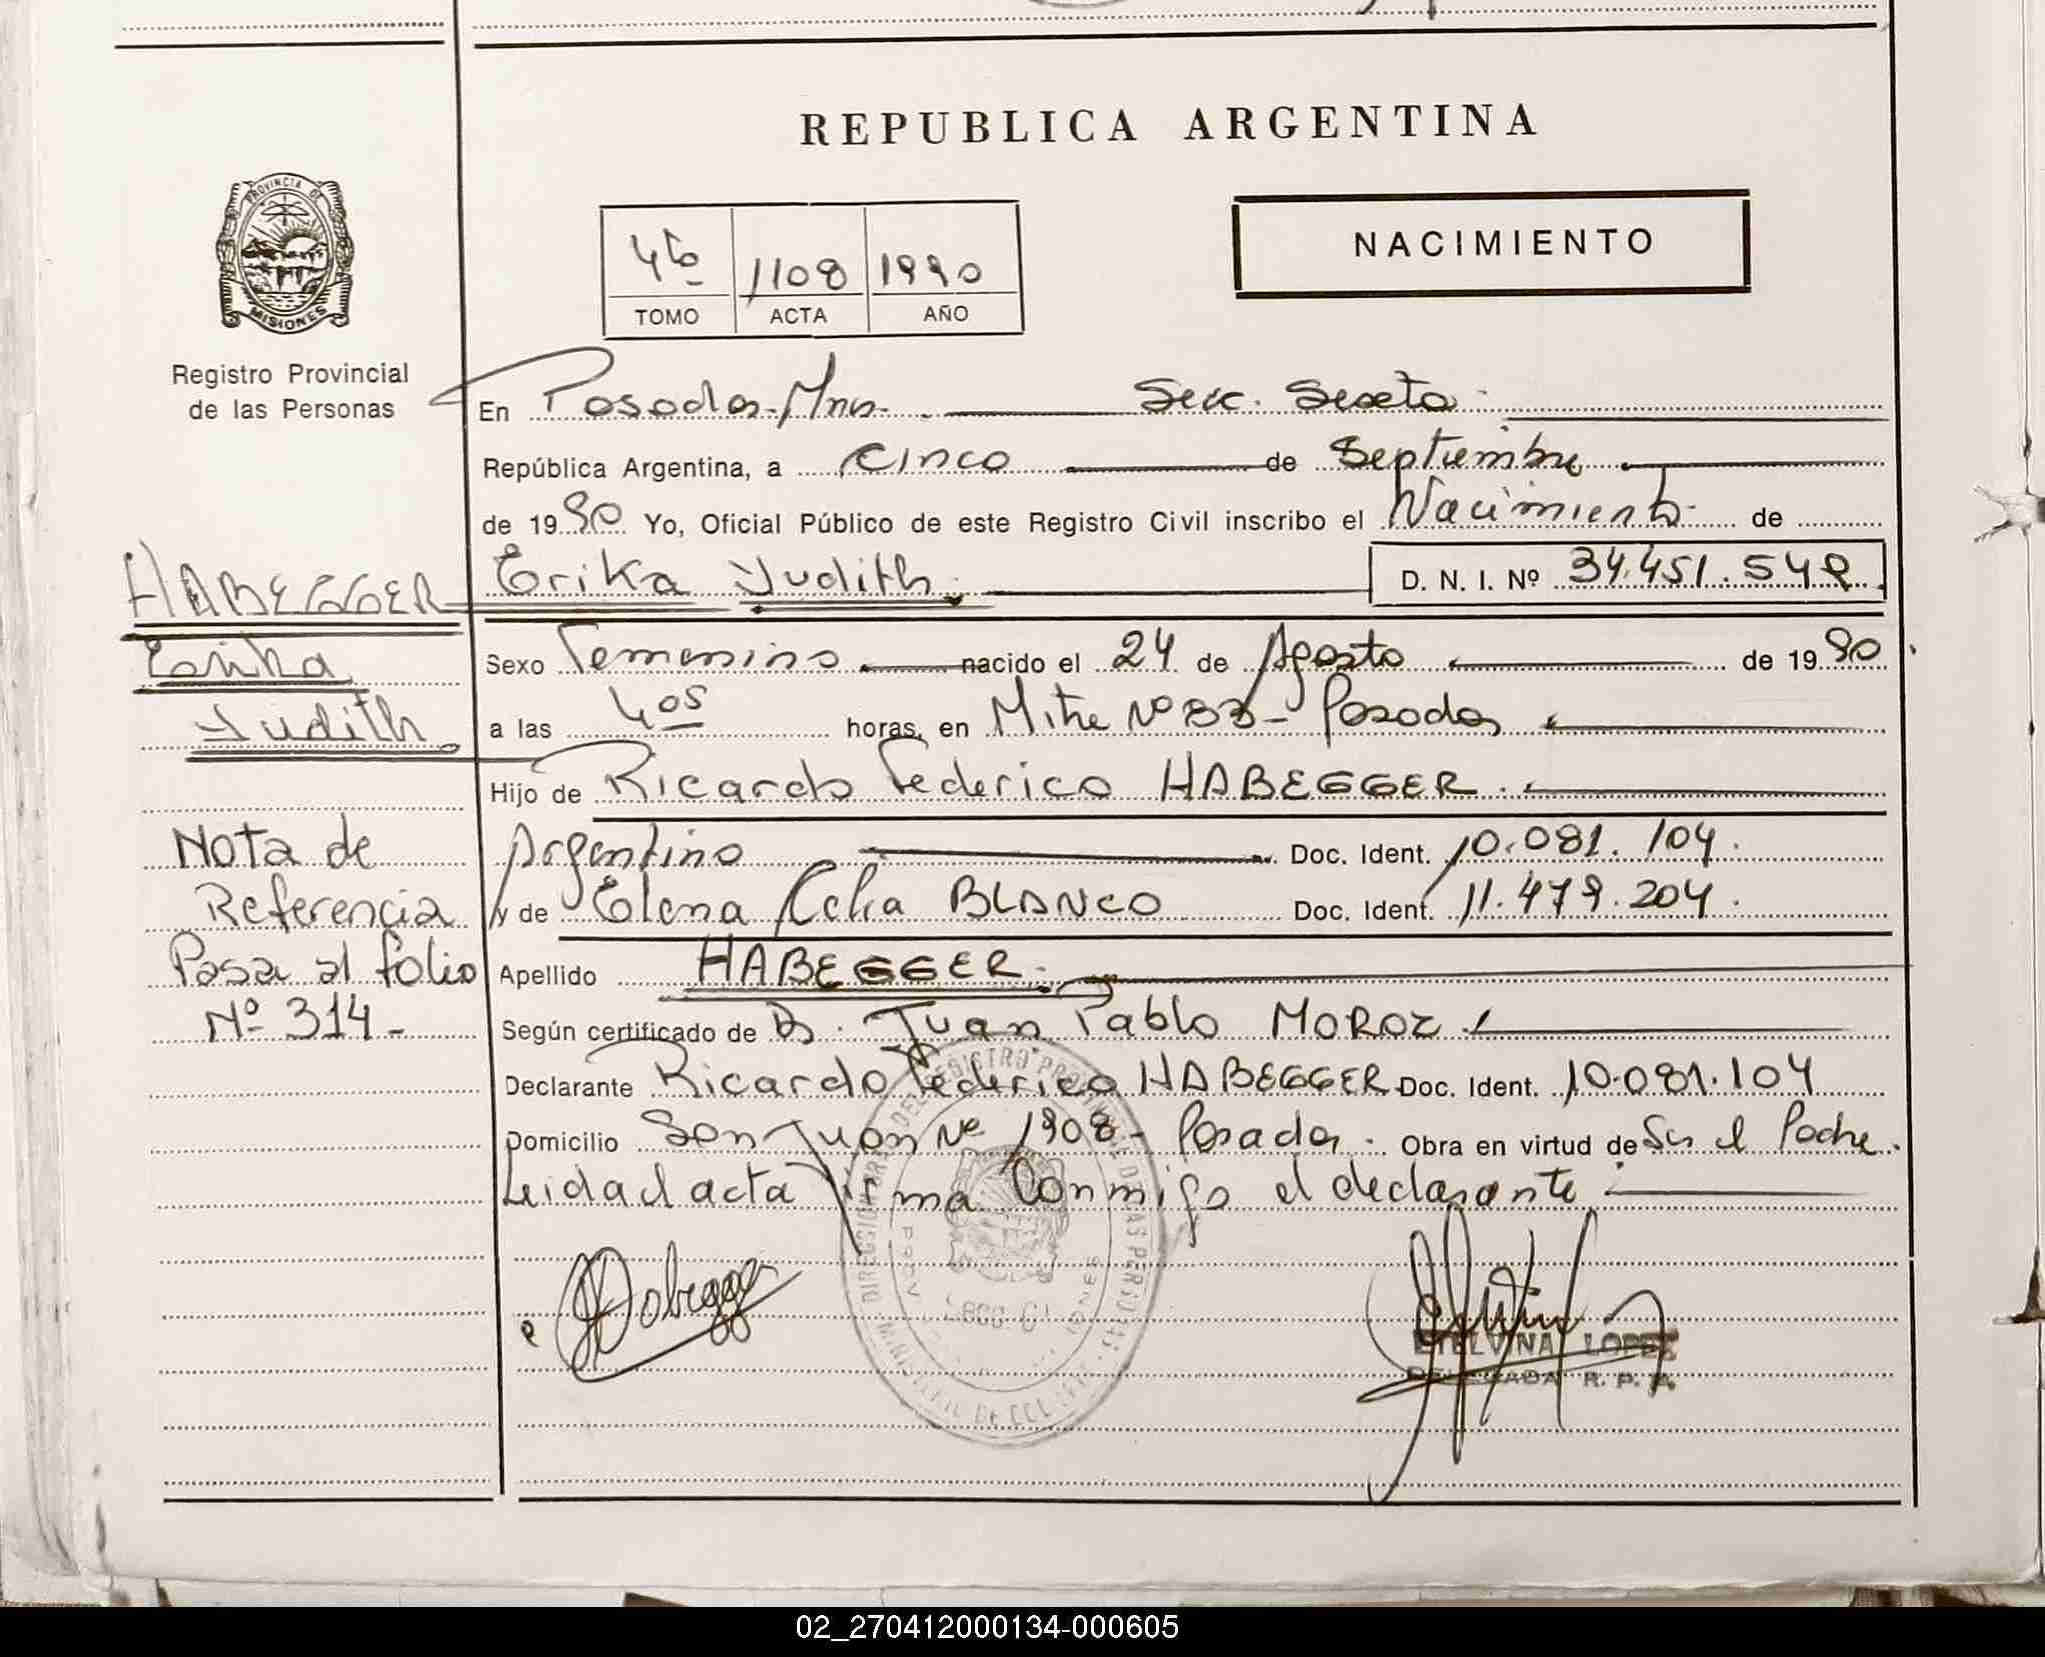 REPUBLICA ARGENTINA
PROVINCIA DE
MISIONES
Registro Provincial
de las Personas
NACIMIENTO
4to 1108 1990
TOMO ACTA AÑO
En Posadas-Mns. Secc. Sexta
República Argentina, a cinco de Septiembre
de 1990 Yo, Oficial Público de este Registro Civil inscribo el Nacimiento de
HABEGGER Erika Judith. D. N. I. Nº 34.451.549
Erika Sexo Femenino nacido el 24 de Agosto de 1990
Judith. a las 4os horas, en Mitre Nº 83- Posadas
Hijo de Ricardo Federico HABEGGER.
Nota de Argentino Doc. Ident. 10.081.104.
Referencia y de Elena Celia BLANCO Doc. Ident. 11.479.204.
Pasa al folio Apellido HABEGGER.
Nº 314- Según certificado de Dr. Juan Pablo MOROZ
Declarante Ricardo Federico HABEGGER Doc. Ident. 10.081.104
Domicilio San Juan Nº 1908- Posadas. Obra en virtud de Ser el Padre.
Leida el acta Firma Conmigo el declarante
ETELVINA LOPEZ
DELEGADA R. P. P.
02_270412000134-000605